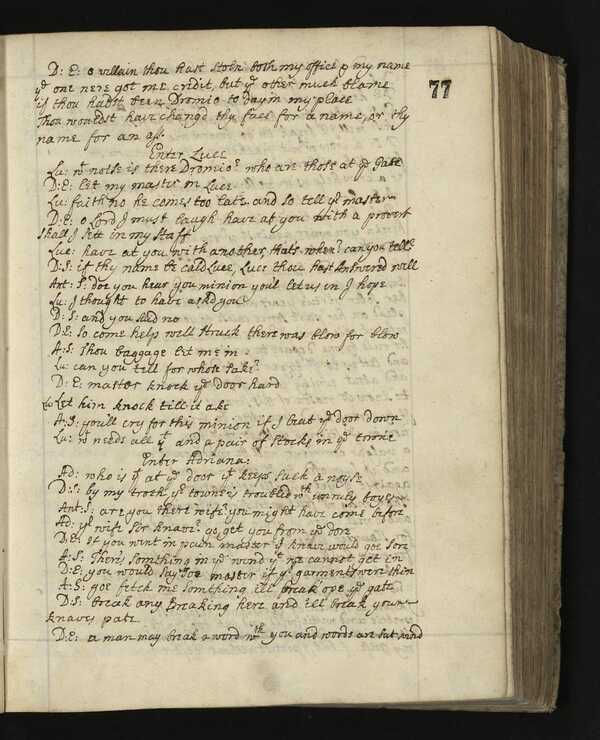 D: E: o villain thou hast stoln both my office & my name
yᵉ one nere got me credit, but yᵉ other much blame
if thou hadst been Dromio to day in my place
77
Thou wouldst have changd thy face for a name, or thy
name for an ass.
Enter Luce
Lu: wᵗ noise is there Dromio? who are those at yᵉ gate
D: E: let my master in Luce
Lu: faith no he comes too late and so tell yʳ master
D: E: o Lord I must laugh have at you with a proverb
shall I sett in my staff
Luc: have at you with another, thats when? can you tell?
D: S: if thy name be cald Luce, Luce thou hast answered well
Ant: S: doe you hear you minion youl let us in I hope
Lu: I thought to have askd you
D: S: and you said no
D: E: so come help well struck there was blow for blow
A: S: Thou baggage let me in
Lu: can you tell for whose sake?
D: E: master knock yᵉ door hard
Lu Let him knock till it ake
A: S: youll cry for this minion if I beat yᵉ door down
Lu: wᵗ needs all yᵗ and a pair of stocks in yᵉ towne
Enter Adriana:
Ad: who is yᵗ at yᵉ door yᵗ keeps such a noyse
D: S: by my troth yʳ towne is troubled wᵗʰ unruly boyes
Ant: S: are you there wife you might have come before
Ad: yʳ wife Sir knave? go, get you from yᵉ dore
D: E: If you went in pain master yˢ knave would goe sore
A: S: There's something in yᵉ wind yᵗ we cannot get in
D: E: you would say soe master if yʳ garments were thin
A: S: goe fetch me something ill break ope yᵉ gate
D: S: break any breaking here and ill break your
knaves pate
D: E: a man may break a word wᵗʰ you and words are but wind